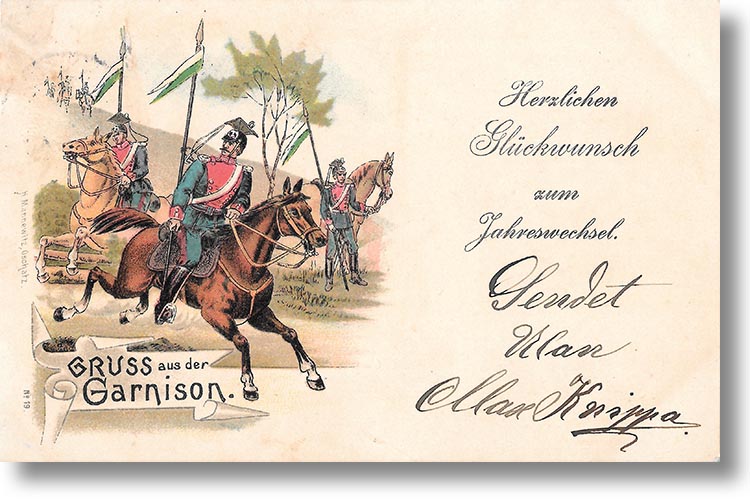 Herzlichen
Glückwunsch
zum
Jahreswechsel.
Sendet
Ulan
Max Knippa.
GRUSS aus der
Garnison.
No 19